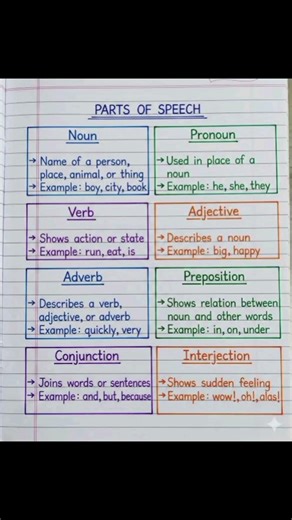 PARTS OF SPEECH
Noun
→ Name of a person,
place, animal, or thing
→ Example: boy, city, book
Pronoun
→ Used in place of a
noun
→ Example: he, she, they
Verb
→ Shows action or state
→ Example: run, eat, is
Adjective
→ Describes a noun
→ Example: big, happy
Adverb
→ Describes a verb,
adjective, or adverb
→ Example: quickly, very
Preposition
→ Shows relation between
noun and other words
→ Example: in, on, under
Conjunction
→ Joins words or sentences
→ Example: and, but, because
Interjection
→ Shows sudden feeling
→ Example: wow!, oh!, alas!